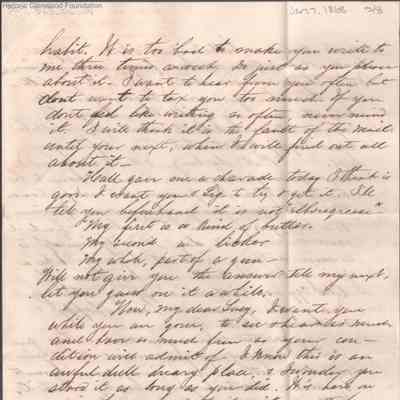 Historic Glenwood Foundation
Jan 7, 1868 3/8
habit. It is too bad to make you write to
me three times a week. Do just as you please
about it. I want to hear from you often but
dont want to tax you too much. If you
dont feel like writing so often, never mind
it. I will think it is the fault of the mail
until your next, when I will find out all
about it—
Hall gave me a charade today I think is
good. I want you & Liz to try & get it. I'll
tell you beforehand it is not
My first is a kind of butter.
My second a licker
My whole, part of a gun—
Will not give you the answer till my next,
let you guess on it a while.
Now, my dear Lucy, I want you
while you are gone, to see & hear as much
and have as much fun as your con-
dition will admit of. I know this is an
awful dull dreary place, & wonder you
stood it as long as you did. It is hard on